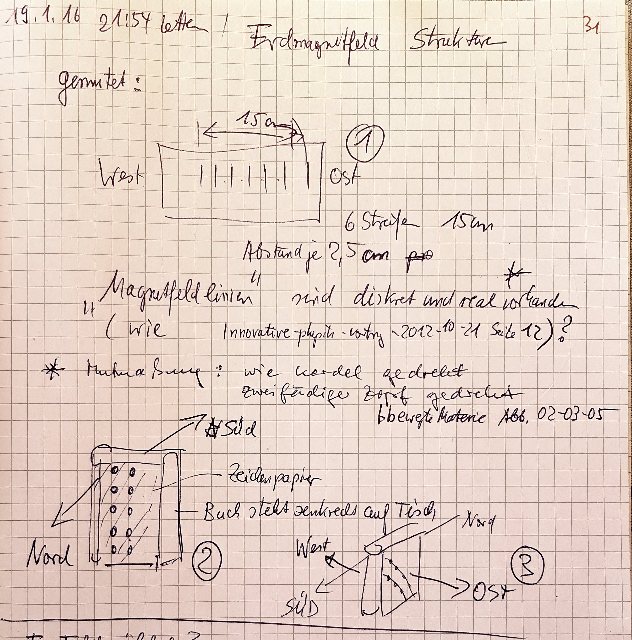 19.1.16 21:54 Erdmagnetfeld Struktur
31
gemutet:
15cm
1
West Ost
6 Streifen 15cm
Abstand je 2,5cm
"Magnetfeldlinien" sind diskret und real vorhanden *
(wie Innovative-physik-vortrag-2012-10-21 Seite 12)?
* Mutmaßung: wie Kordel gedreht
zweifädiger Zopf gedreht
bbewegte Materie Abb. 02-03-05
Süd
Zeichenpapier
Buch steht senkrecht auf Tisch
Nord 2
Nord
West
3
Süd Ost